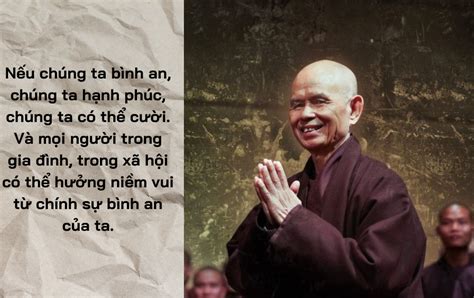 Nếu chúng ta bình an,
chúng ta hạnh phúc,
chúng ta có thể cười.
Và mọi người trong
gia đình, trong xã hội
có thể hưởng niềm vui
từ chính sự bình an
của ta.